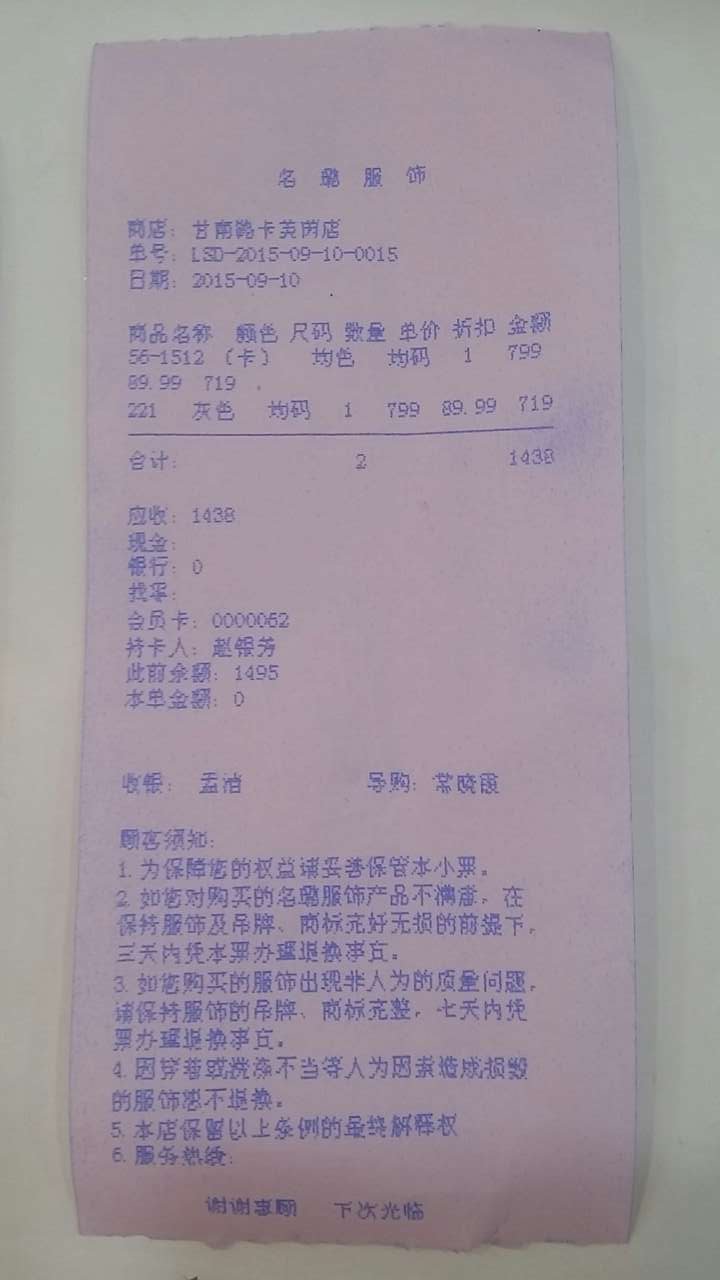 名 璐 服 饰
商店: 甘南路卡芙茵店
单号: LSD-2015-09-10-0015
日期: 2015-09-10
商品名称 颜色 尺码 数量 单价 折扣 金额
56-1512 (卡) 均色 均码 1 799
89.99 719
221 灰色 均码 1 799 89.99 719
合计: 2 1438
应收: 1438
现金:
银行: 0
找零:
会员卡: 0000062
持卡人: 赵银芳
此前余额: 1495
本单金额: 0
收银: 孟 导购: 常晓霞
顾客须知:
1.为保障您的权益请妥善保管本小票。
2.如您对购买的名璐服饰产品不满意,在
保持服饰及吊牌、商标完好无损的前提下,
三天内凭本票办理退换事宜。
3.如您购买的服饰出现非人为的质量问题,
请保持服饰的吊牌、商标完整,七天内凭
票办理退换事宜。
4.因穿著或洗涤不当等人为因素造成损毁
的服饰恕不退换。
5.本店保留以上条例的最终解释权
6.服务热线:
谢谢惠顾 下次光临